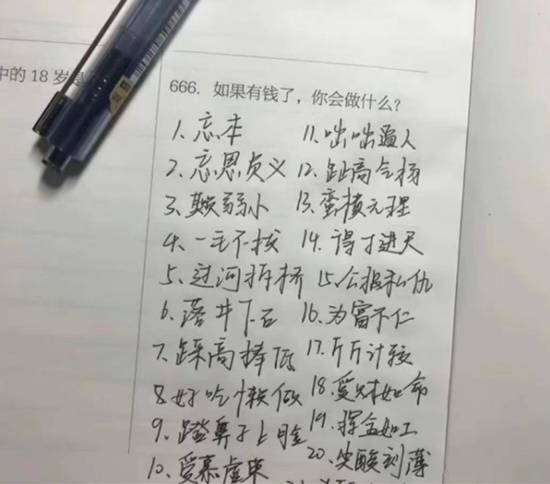 中的 18 岁是
666. 如果有钱了，你会做什么？
1、忘本
2、忘恩负义
3、欺弱小
4、一毛不拔
5、过河拆桥
6、落井下石
7、踩高捧低
8、好吃懒做
9、蹬鼻子上脸
10、爱慕虚荣
11、咄咄逼人
12、趾高气扬
13、蛮横无理
14、得寸进尺
15、公报私仇
16、为富不仁
17、斤斤计较
18、爱财如命
19、挥金如土
20、尖酸刻薄